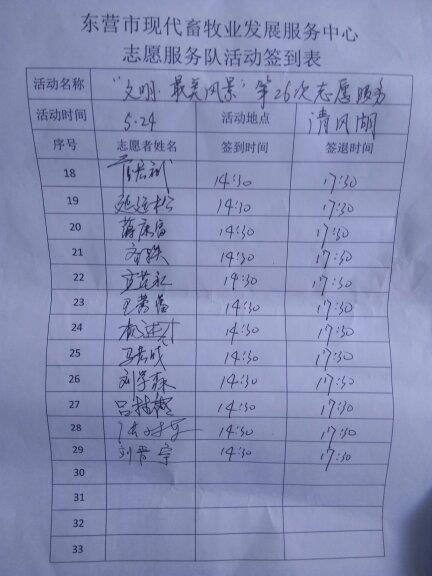 东营市现代畜牧业发展服务中心
志愿服务队活动签到表
活动名称 “文明·最美风景”第26次志愿服务
活动时间 5.24 活动地点 清风湖
序号 志愿者姓名 签到时间 签退时间
18 14:30 17:30
19 延廷松 14:30 17:30
20 蒋康富 14:30 17:30
21 14:30 17:30
22 14:30 17:30
23 14:30 17:30
24 14:30 17:30
25 马君成 14:30 17:30
26 刘学森 14:30 17:30
27 14:30 17:30
28 14:30 17:30
29 刘晋宁 14:30 17:30
30
31
32
33